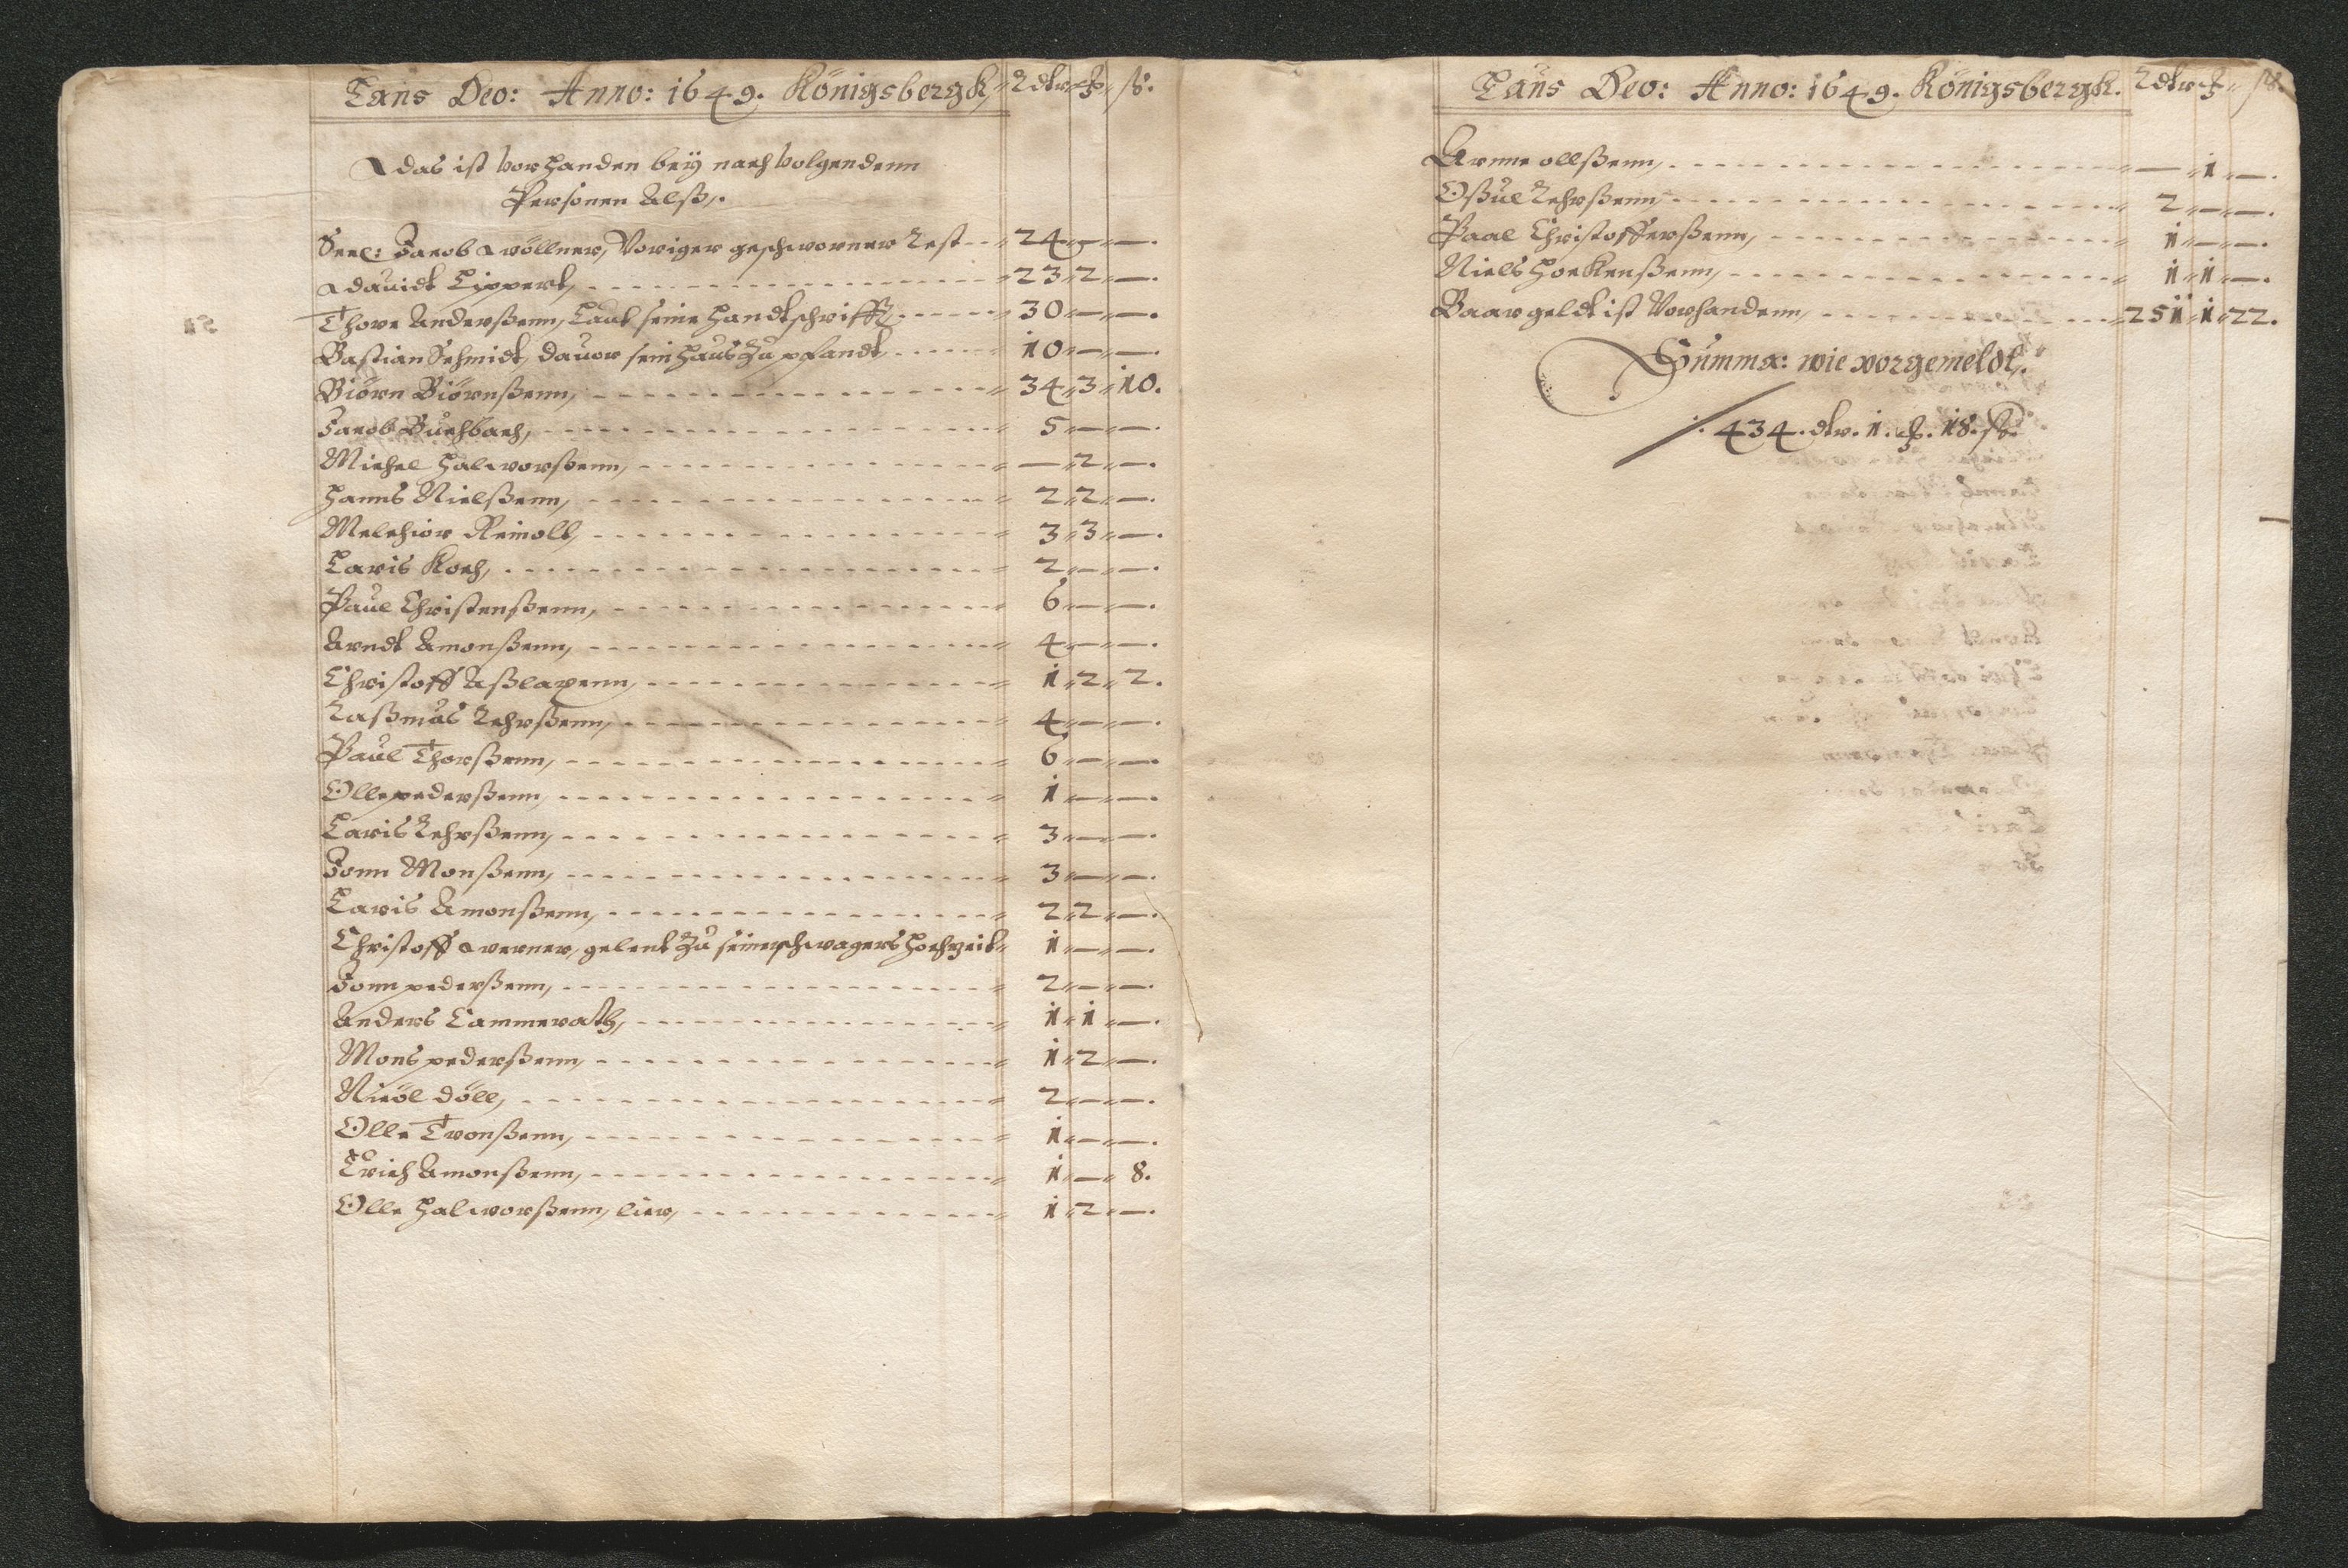 Laus Deo: Anno: 1649. Königsbergk, Rdlr ₰ ß.
das ist vorhanden beÿ nachvolgendenn
Personen Alß.
Seel: Jacob wöllner, Voriger geschworner Rest 24 — —.
Davidt Lippert, 23 2 —.
Thore Anderßenn, Laut seine Handtschrifft 30 — —.
Bastian Schmidt, davor sein Haus Zu pfandt 10 — —.
Biörn Biörnßenn, 34 3 10.
Jacob Buchbach, 5 — —.
Michel Halworßenn, — 2 —.
Hanns Nielßenn, 2 2 —.
Melchior Reinolt, 3 3 —.
Laris Koch, 2 — —.
Paul Christenßenn, 6 — —.
Arndt Amonßenn, 4 — —.
Christoff Aßla 1 2 2.
Raßmus Rehrßenn, 4 — —.
Paul Thorßenn, 6 — —.
Olle pederßenn, 1 — —.
Laris Rehrßenn, 3 — —.
Jonn Monßenn, 3 — —.
Laris Amonßenn, 2 2 —.
Christoff werner, gelent Zu seiner schwagers Hochzeit 1 — —.
Jonn pederßenn, 2 — —.
Anders Cammerath, 1 1 —.
Mons pederßenn, 1 2 —.
Nicöl döll, 2 — —.
Olle Tronßenn, 1 — —.
Erich Amonßenn, 1 — 8.
Olle Halworßenn, lier, 1 2 —.
Laus Deo: Anno: 1649. Königsbergk. Rdlr ₰ ß.
Arnne ollßenn, — 1 —.
Oßul Rehrßenn, 2 — —.
Paal Christofferßenn, 1 — —.
Niels Hockenßenn, 1 1 —.
Baar geldt ist Vorhandenn, 251 1 22.
Summa: wie vorgemeldt.
434. dlr. 1. ₰. 18. ß.